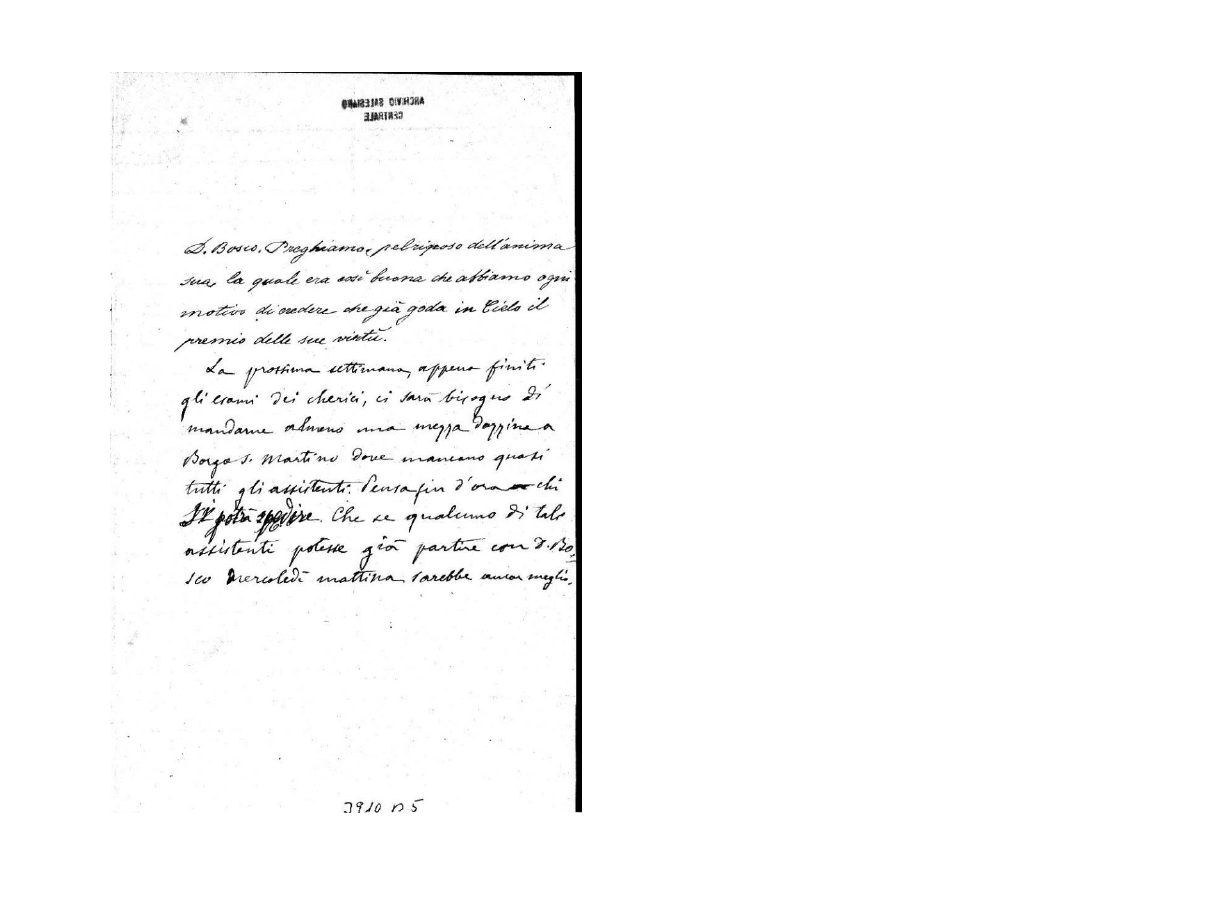 ARCHIVIO SALESIANO
CENTRALE
D. Bosco. Preghiamo, pel riposo dell'anima
sua, la quale era così buona che abbiamo ogni
motivo di credere che già goda in Cielo il
premio delle sue virtù.
La prossima settimana, appena finiti
gli esami dei cherici, ci sarà bisogno di
mandarne almeno una mezza dozzina a
Borgo S. Martino dove mancano quasi
tutti gli assistenti. Pensa fin d'ora chi
si potrà spedire. Che se qualcuno di tali
assistenti potesse già partire con D. Bo-
sco Mercoledì mattina, sarebbe ancor meglio.
3910 B 5